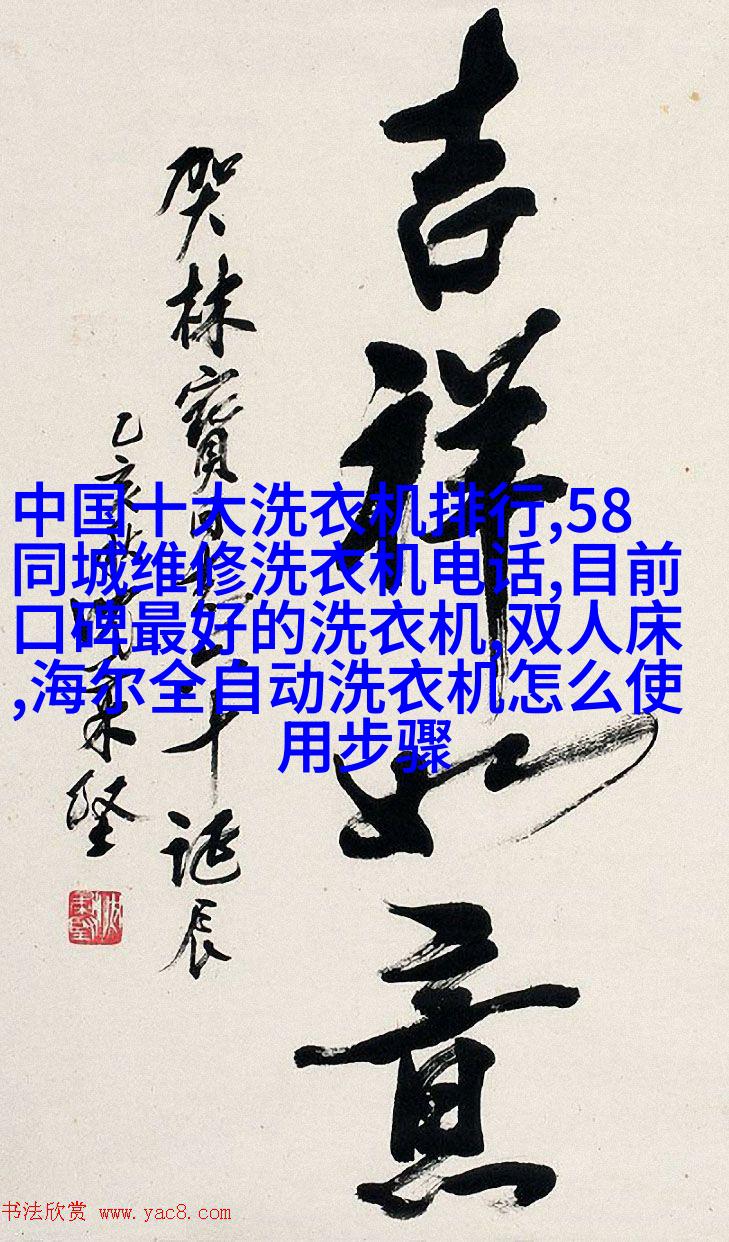 吉祥如意
贺林宝
诞辰
乙亥
秉坚
中国十大洗衣机排行,58
同城维修洗衣机电话,目前
口碑最好的洗衣机,双人床
,海尔全自动洗衣机怎么使
用步骤
书法欣赏 www.yac8.com